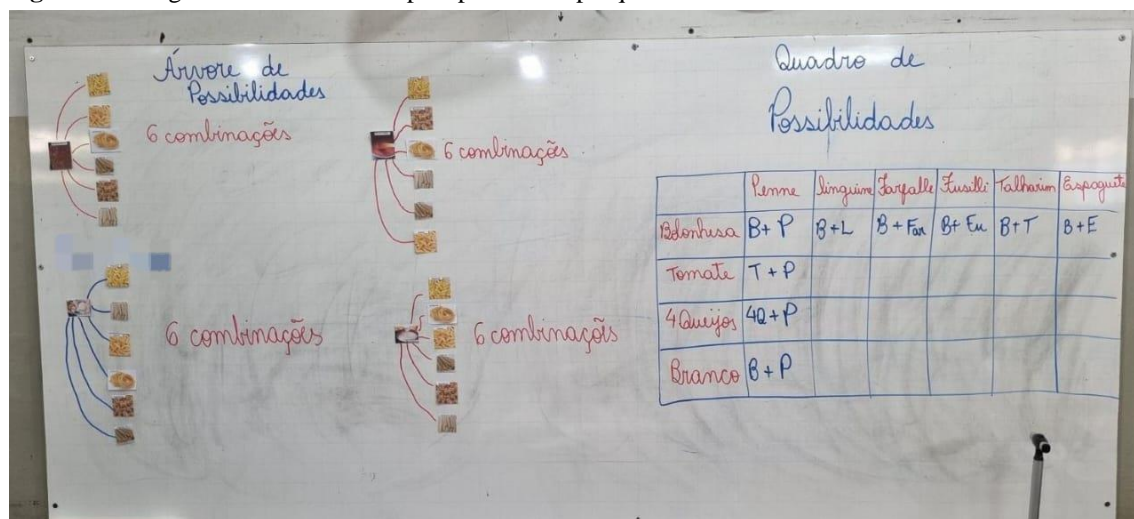 Árvore de
Possibilidades
6 combinações
6 combinações
6 combinações
6 combinações
Quadro de
Possibilidades
Penne Linguine Farfalle Fusilli Talharim Espaguete
Bolonhesa B+P B+L B+Far B+Fu B+T B+E
Tomate T+P
4 Queijos 4Q+P
Branco B+P